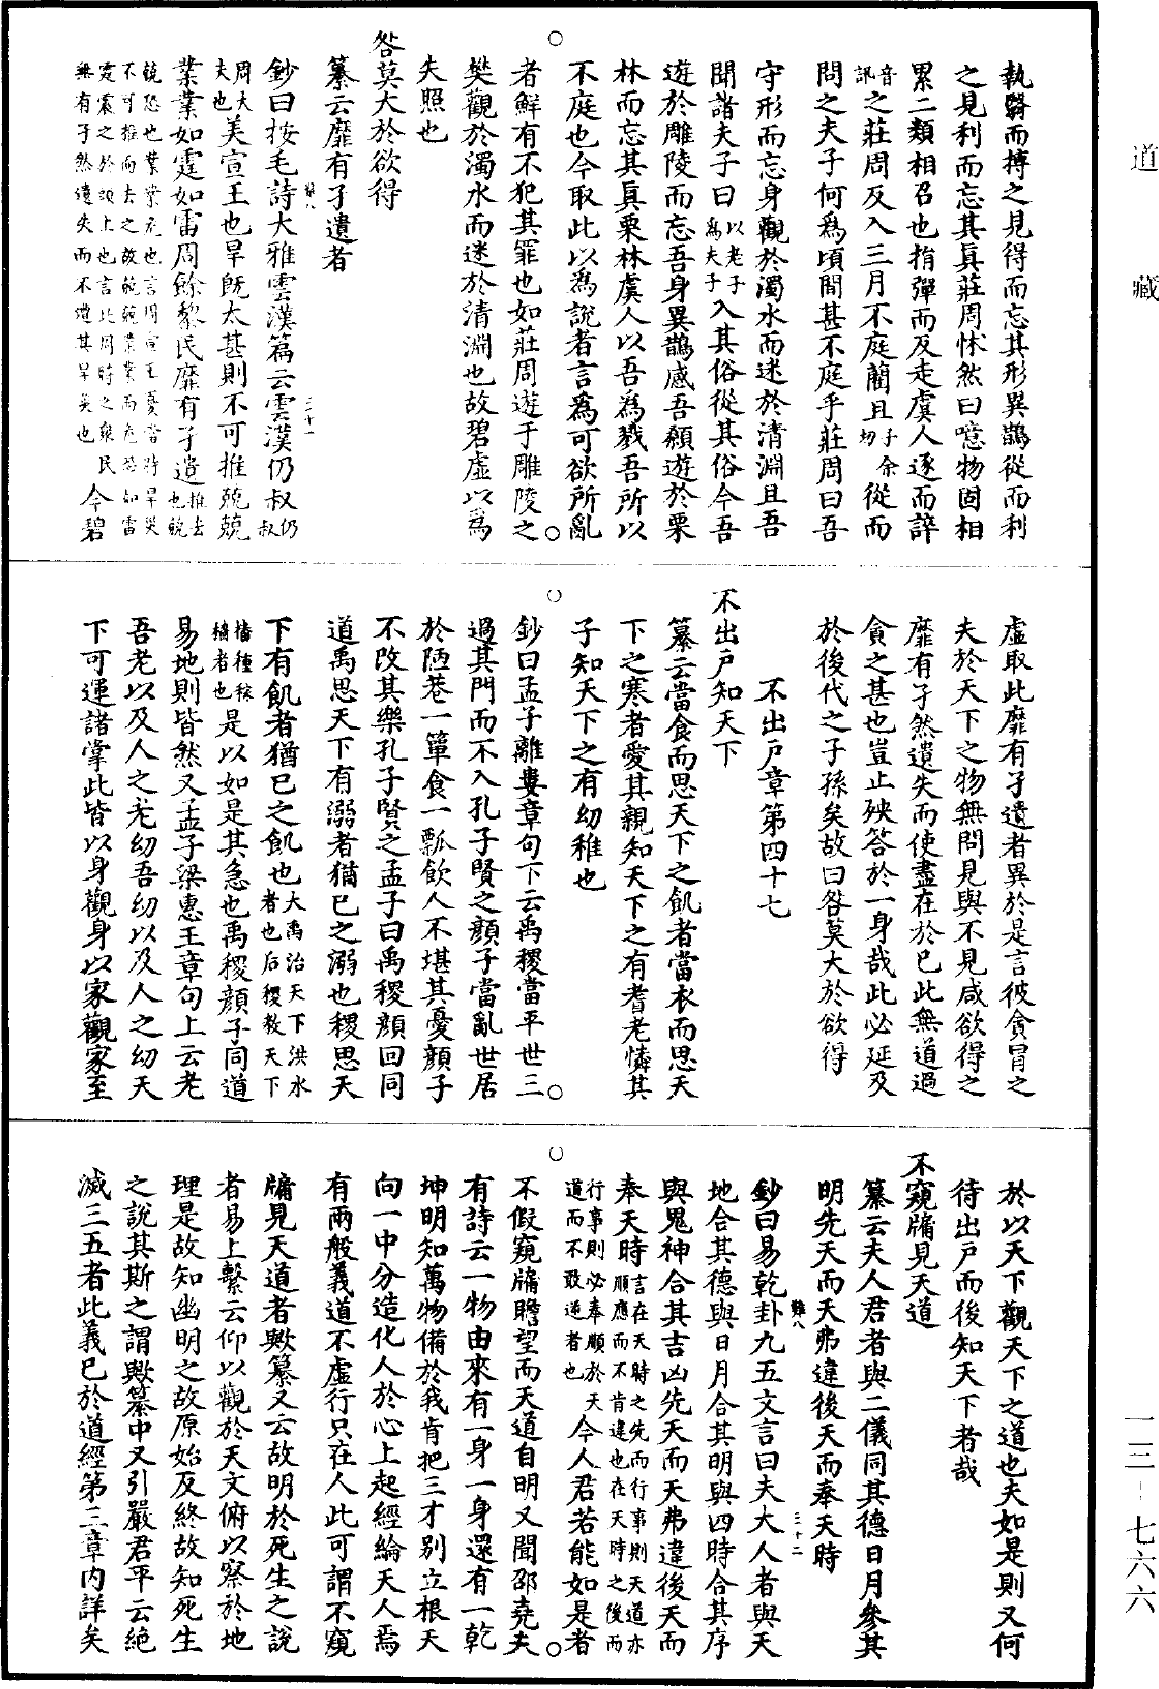 道藏
執翳而搏之見得而忘其形異鵲從而利
之見利而忘其眞莊周怵然曰噫物固相
累二類相召也捐彈而反走虞人逐而誶
音訊之莊周反入三月不庭藺且子余切從而
問之夫子何爲頃間甚不庭乎莊周曰吾
守形而忘身觀於濁水而迷於清淵且吾
聞諸夫子曰以老子爲夫子入其俗從其俗今吾
遊於雕陵而忘吾身異鵲感吾顙遊於栗
林而忘其眞栗林虞人以吾爲戮吾所以
不庭也今取此以爲說者言爲可欲所亂
者鮮有不犯其罪也如莊周遊于雕陵之
樊觀於濁水而迷於清淵也故碧虛以爲
失照也
咎莫大於欲得
纂云靡有孑遺者
鈔曰按毛詩大雅雲漢篇云雲漢仍叔仍叔
周大夫也美宣王也旱既太甚則不可推兢兢
業業如霆如雷周餘黎民靡有孑遺推去也兢
兢恐也業業危也言周宣王憂昔時旱災
不可推而去之故兢兢業業而危恐如雷
霆震之於頭上也言此周時之衆民
無有孑然遺失而不遭其旱災也今碧
虛取此靡有孑遺者異於是言彼貪冒之
夫於天下之物無問見與不見咸欲得之
靡有孑然遺失而使盡在於已此無道過
貪之甚也豈止殃咎於一身哉此必延及
於後代之子孫矣故曰咎莫大於欲得
不出戶章第四十七
不出戶知天下
纂云當食而思天下之飢者當衣而思天
下之寒者愛其親知天下之有耆老憐其
子知天下之有幼稚也
鈔曰孟子離婁章句下云禹稷當平世三
過其門而不入孔子賢之顏子當亂世居
於陋巷一簞食一瓢飲人不堪其憂顏子
不改其樂孔子賢之孟子曰禹稷顏回同
道禹思天下有溺者猶已之溺也稷思天
下有飢者猶已之飢也大禹治天下洪水者也后稷教天下
播種稼穡者也是以如是其急也禹稷顏子同道
易地則皆然又孟子梁惠王章句上云老
吾老以及人之老幼吾幼以及人之幼天
下可運諸掌此皆以身觀身以家觀家至
於以天下觀天下之道也夫如是則又何
待出戶而後知天下者哉
不窺牖見天道
纂云夫人君者與二儀同其德日月參其
明先天而天弗違後天而奉天時
鈔曰易乾卦九五文言曰夫大人者與天
地合其德與日月合其明與四時合其序
與鬼神合其吉凶先天而天弗違後天而
奉天時言在天時之先而行事則天道亦順應而不肯違也在天時之後而
行事則必奉順於天道而不敢逆者也今人君若能如是者
不假窺牖瞻望而天道自明又聞邵堯夫
有詩云一物由來有一身一身還有一乾
坤明知萬物備於我肯把三才別立根天
向一中分造化人於心上起經綸天人焉
有兩般義道不虛行只在人此可謂不窺
牖見天道者歟纂又云故明於死生之說
者易上繫云仰以觀於天文俯以察於地
理是故知幽明之故原始反終故知死生
之說其斯之謂歟纂中又引嚴君平云絕
滅三五者此義已於道經第三章內詳矣
一三-七六六